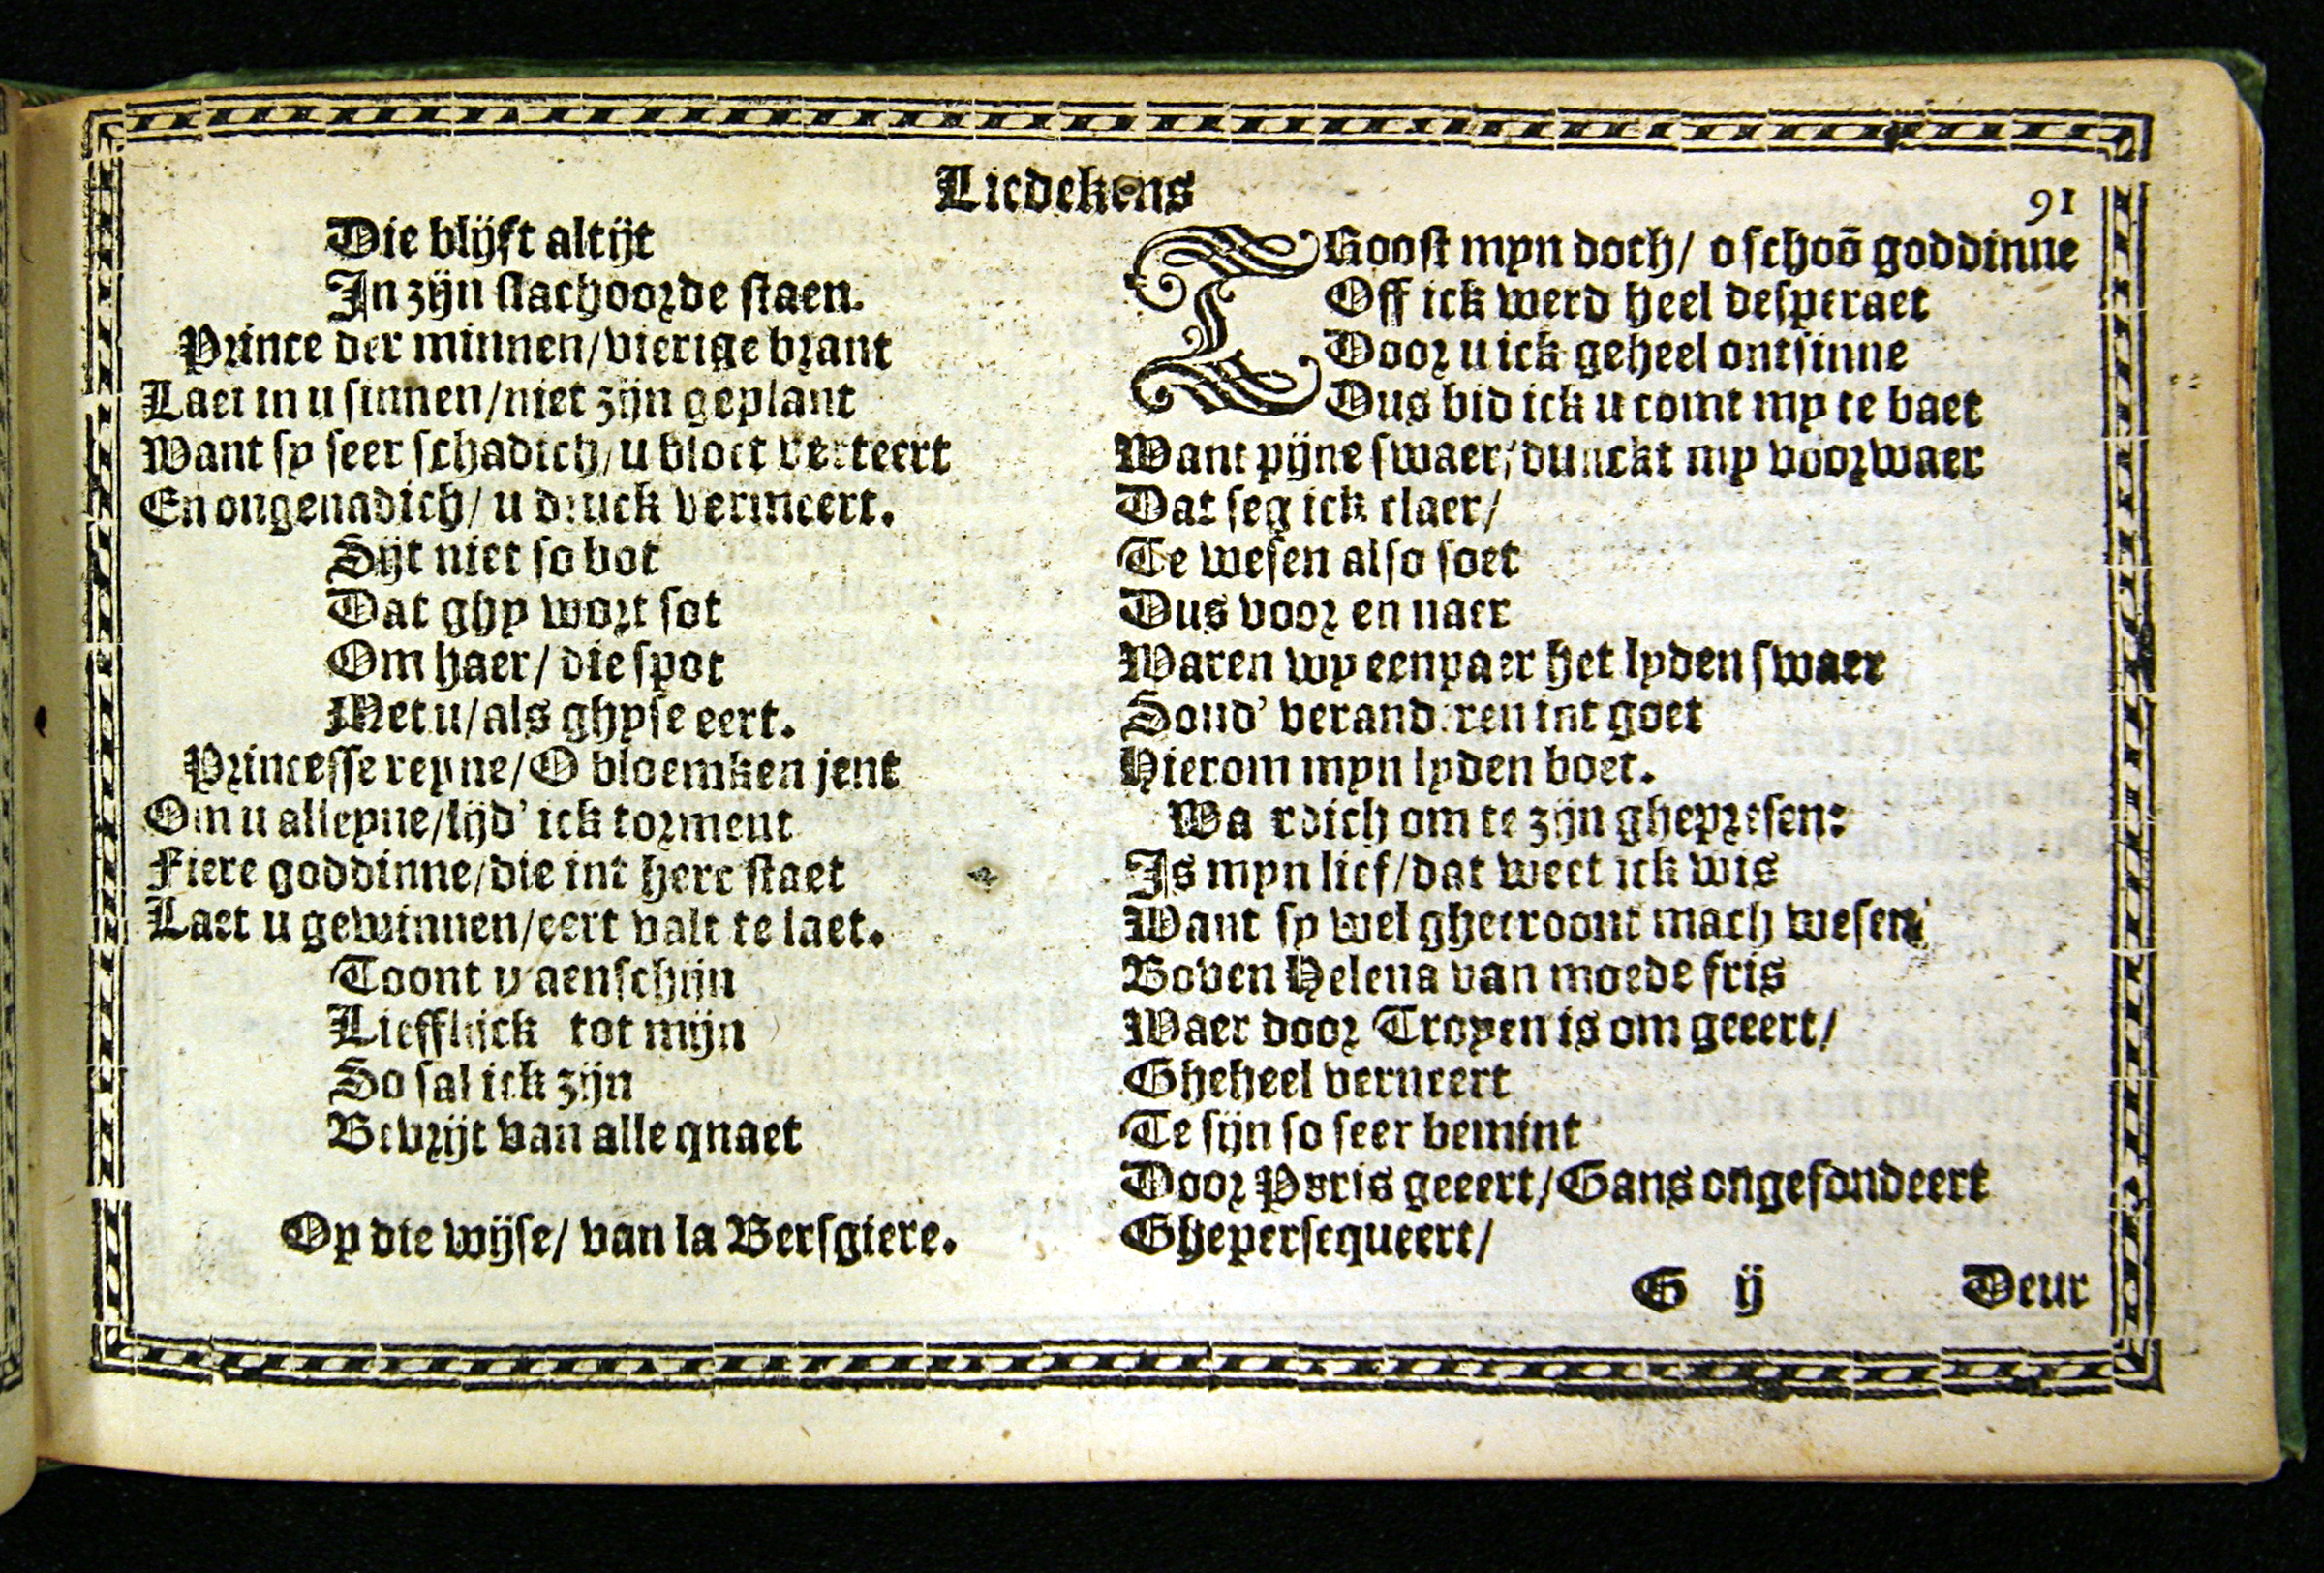 Liedekens
91
Die blijft altijt
In zijn slachoorde staen.
Prince der minnen/vierige brant
Laet in u sinnen/niet zijn geplant
Want sy seer schadich/u bloet verteert
En ongenadich/u druck vermeert.
Sijt niet so bot
Dat ghy wort sot
Om haer/die spot
Met u/als ghyse eert.
Princesse reyne/O bloemken jent
Om u alleyne/lijd' ick torment
Fiere goddinne/die int hert staet
Laet u gewinnen/eert valt te laet.
Toont u aenschijn
Liefflick tot mijn
So sal ick zijn
Bevrijt van alle qnaet
Op die wijse/van la Bersgiere.
TRoost myn doch/o schoō goddinne
Off ick werd heel desperaet
Door u ick geheel ontsinne
Dus bid ick u comt my te baet
Want pijne swaer/dunckt my voorwaer
Dat seg ick claer/
Te wesen also soet
Dus voor en naer
Waren wy eenpaer het lyden swaer
Soud' veranderen int goet
Hierom myn lyden boet.
Waerdich om te zijn ghepresen:
Is myn lief/dat weet ick wis
Want sy wel ghecroont mach wesen
Boven Helena van moede fris
Waer door Troyen is om geeert/
Gheheel verneert
Te sijn so seer bemint
Door Paris geeert/Gans ongefondeert
Ghepersequeert/
G ij
Deur